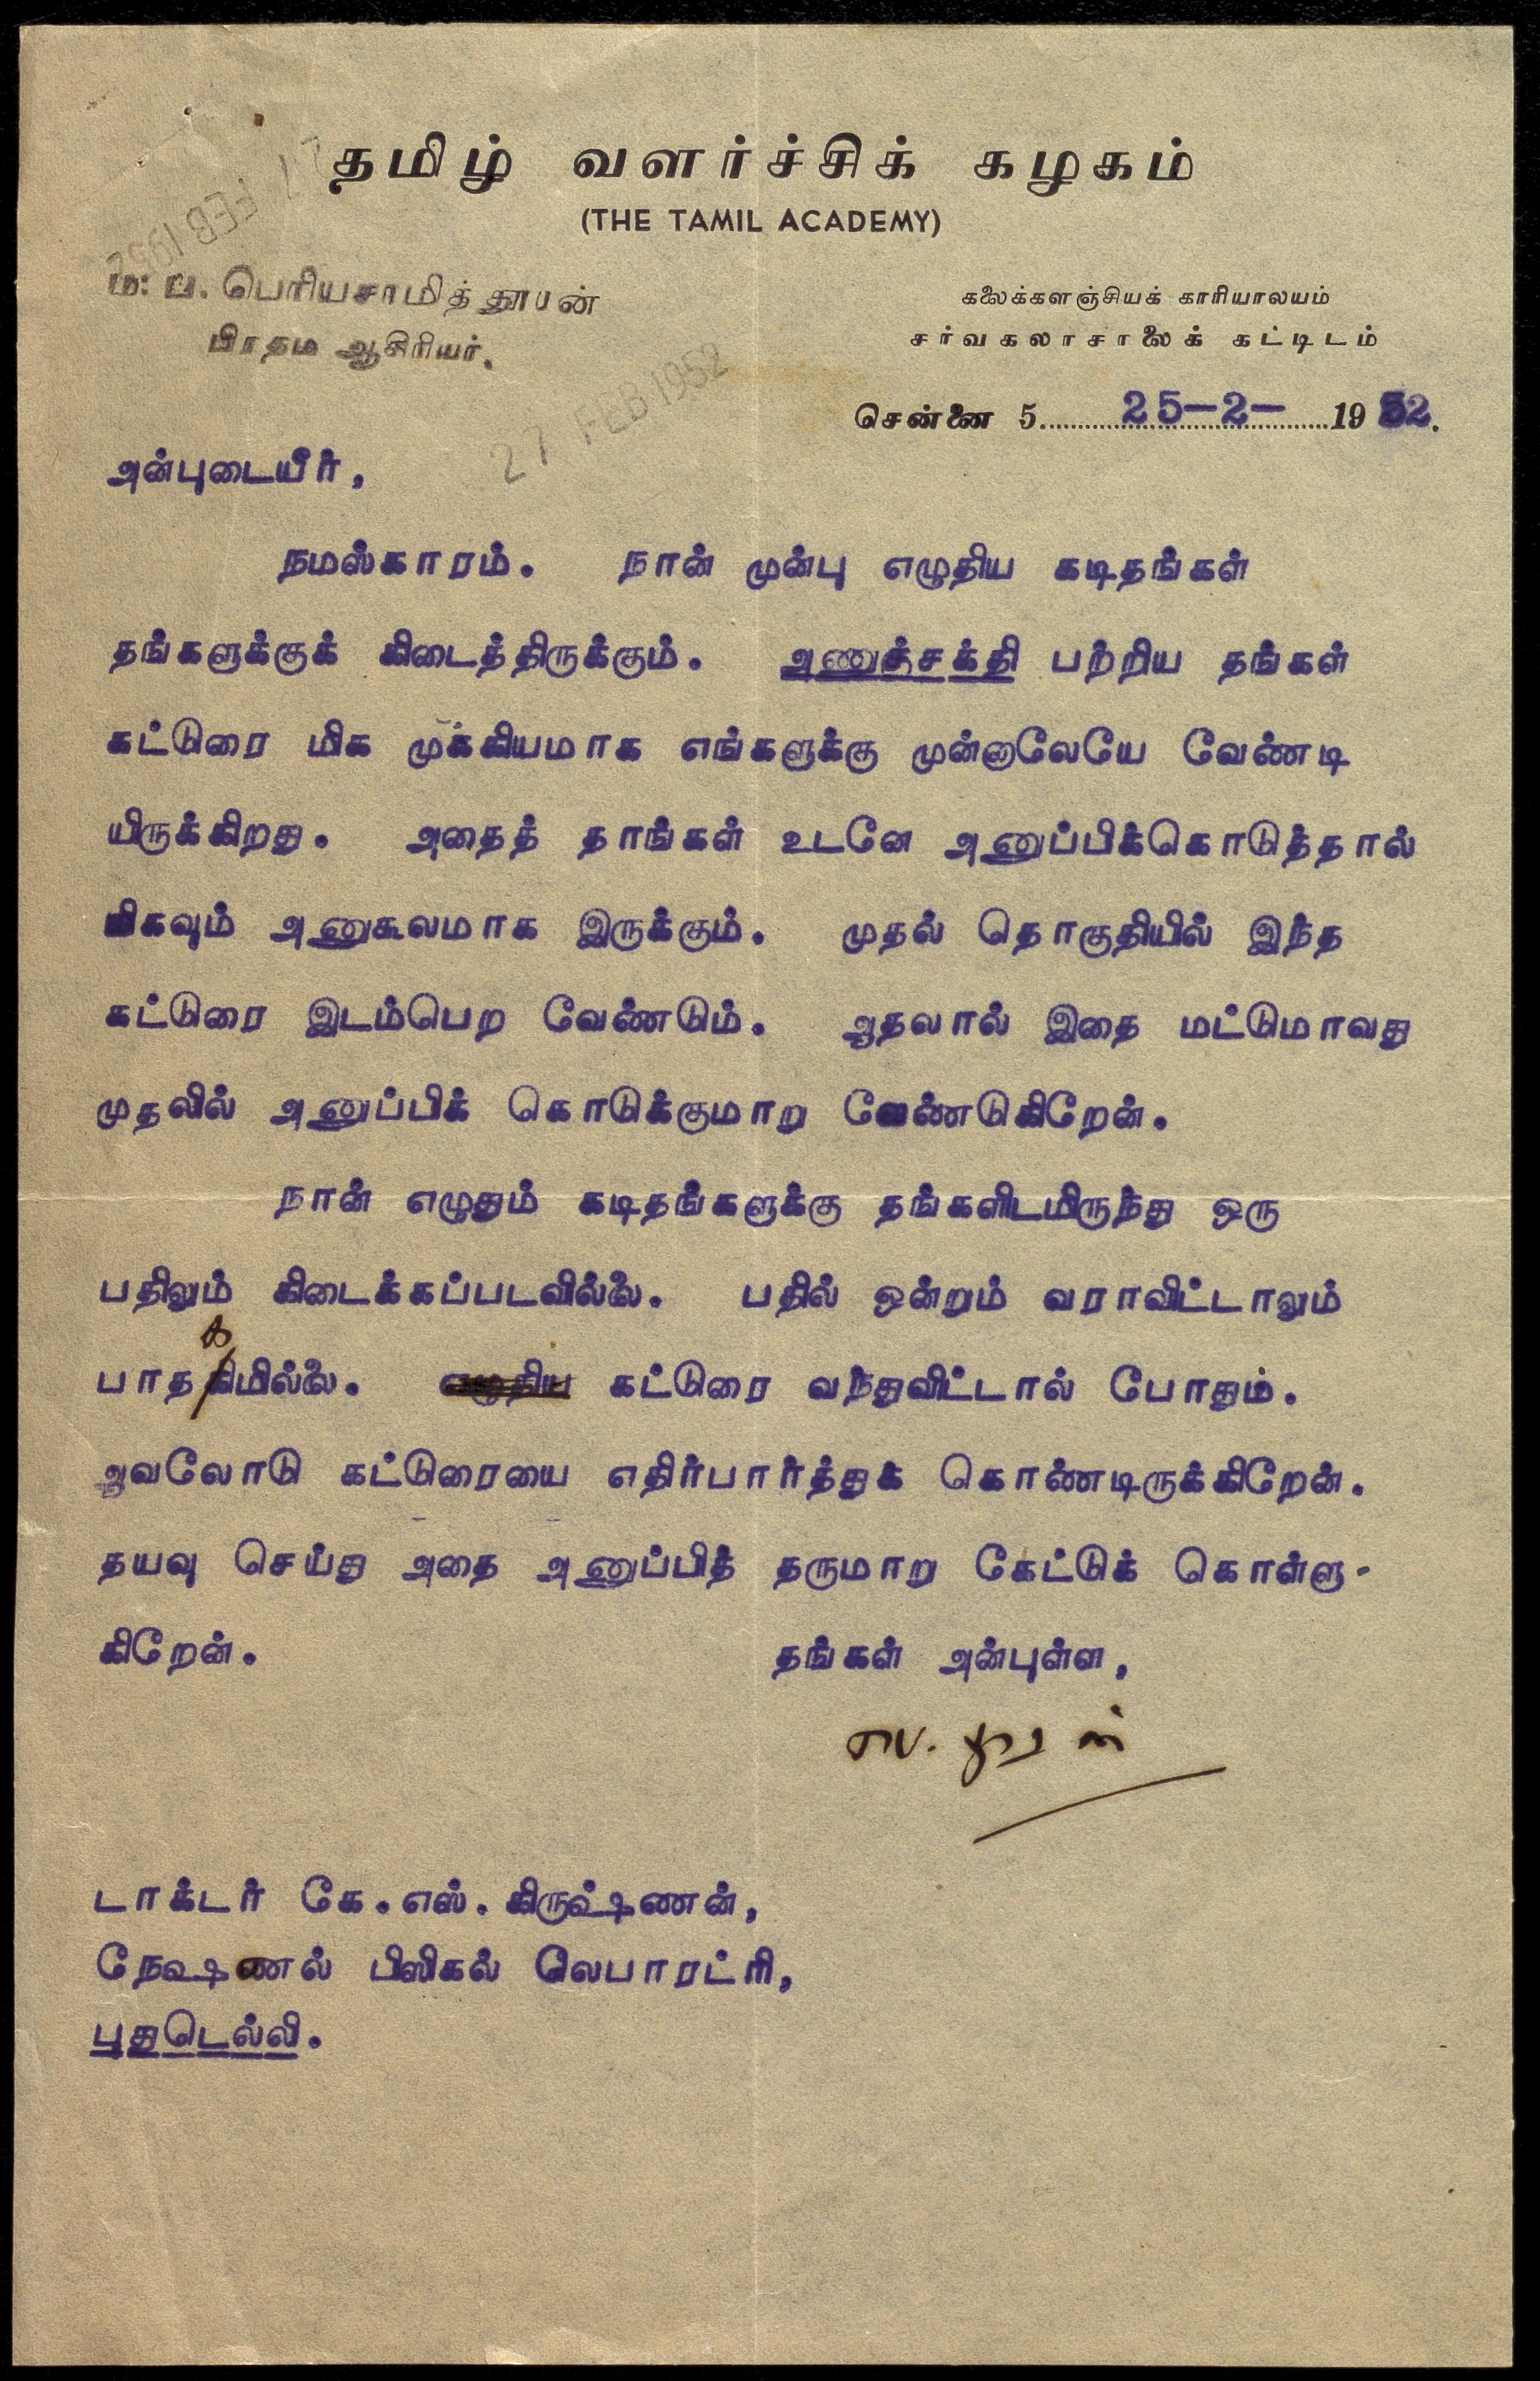 தமிழ் வளர்ச்சிக் கழகம்
(THE TAMIL ACADEMY)
17 FEB 1952
ம. ப. பெரியசாமித் தூரன்
பிரதம ஆசிரியர்.
கலைக்களஞ்சியக் காரியாலயம்
சர்வகலாசாலைக் கட்டிடம்
27 FEB 1952
சென்னை 5 25-2- 1952.
அன்புடையீர்,
நமஸ்காரம். நான் முன்பு எழுதிய கடிதங்கள்
தங்களுக்குக் கிடைத்திருக்கும். அணுச்சக்தி பற்றிய தங்கள்
கட்டுரை மிக முக்கியமாக எங்களுக்கு முன்னாலேயே வேண்டி
யிருக்கிறது. அதைத் தாங்கள் உடனே அனுப்பிக்கொடுத்தால்
மிகவும் அனுகூலமாக இருக்கும். முதல் தொகுதியில் இந்த
கட்டுரை இடம்பெற வேண்டும். ஆதலால் இதை மட்டுமாவது
முதலில் அனுப்பிக் கொடுக்குமாறு வேண்டுகிறேன்.
நான் எழுதும் கடிதங்களுக்கு தங்களிடமிருந்து ஒரு
பதிலும் கிடைக்கப்படவில்லை. பதில் ஒன்றும் வராவிட்டாலும்
பாதகமில்லை. எழுதிய கட்டுரை வந்துவிட்டால் போதும்.
ஆவலோடு கட்டுரையை எதிர்பார்த்துக் கொண்டிருக்கிறேன்.
தயவு செய்து அதை அனுப்பித் தருமாறு கேட்டுக் கொள்ளு-
கிறேன். தங்கள் அன்புள்ள,
ம.ப. தூரன்
டாக்டர் கே.எஸ். கிருஷ்ணன்,
நேஷணல் பிஸிகல் லெபாரட்ரி,
புதுடெல்லி.